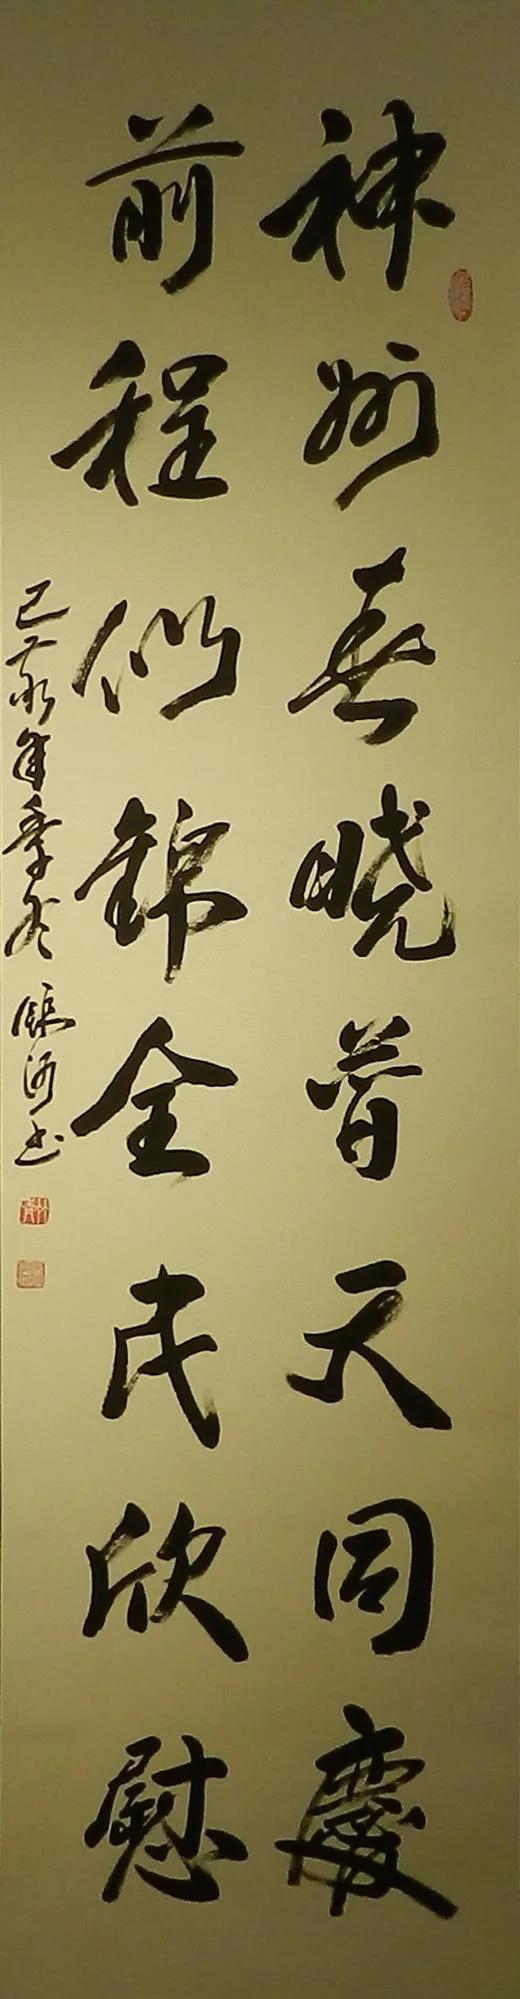 神州春曉普天同慶
前程似錦全民欣慰
己亥年季冬 銀河书